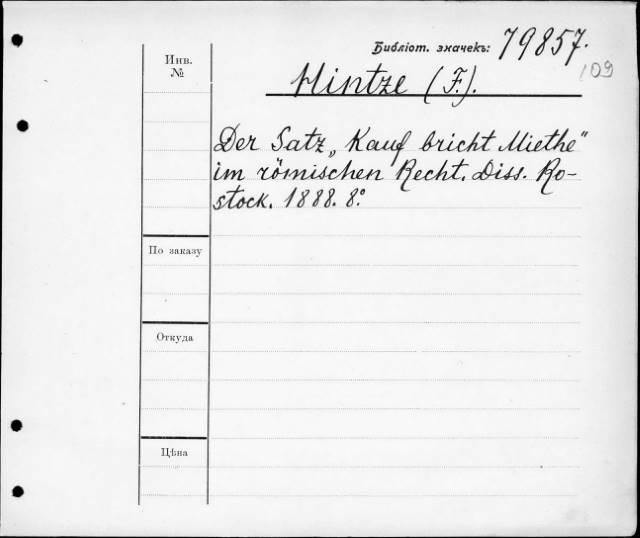 Библіот. значекъ: 79857.
109
Инв.
№
Hintze (F.).
Der Satz „Kauf bricht Miethe"
im römischen Recht. Diss. Ro-
stock. 1888. 8.°
По заказу
Откуда
Цѣна